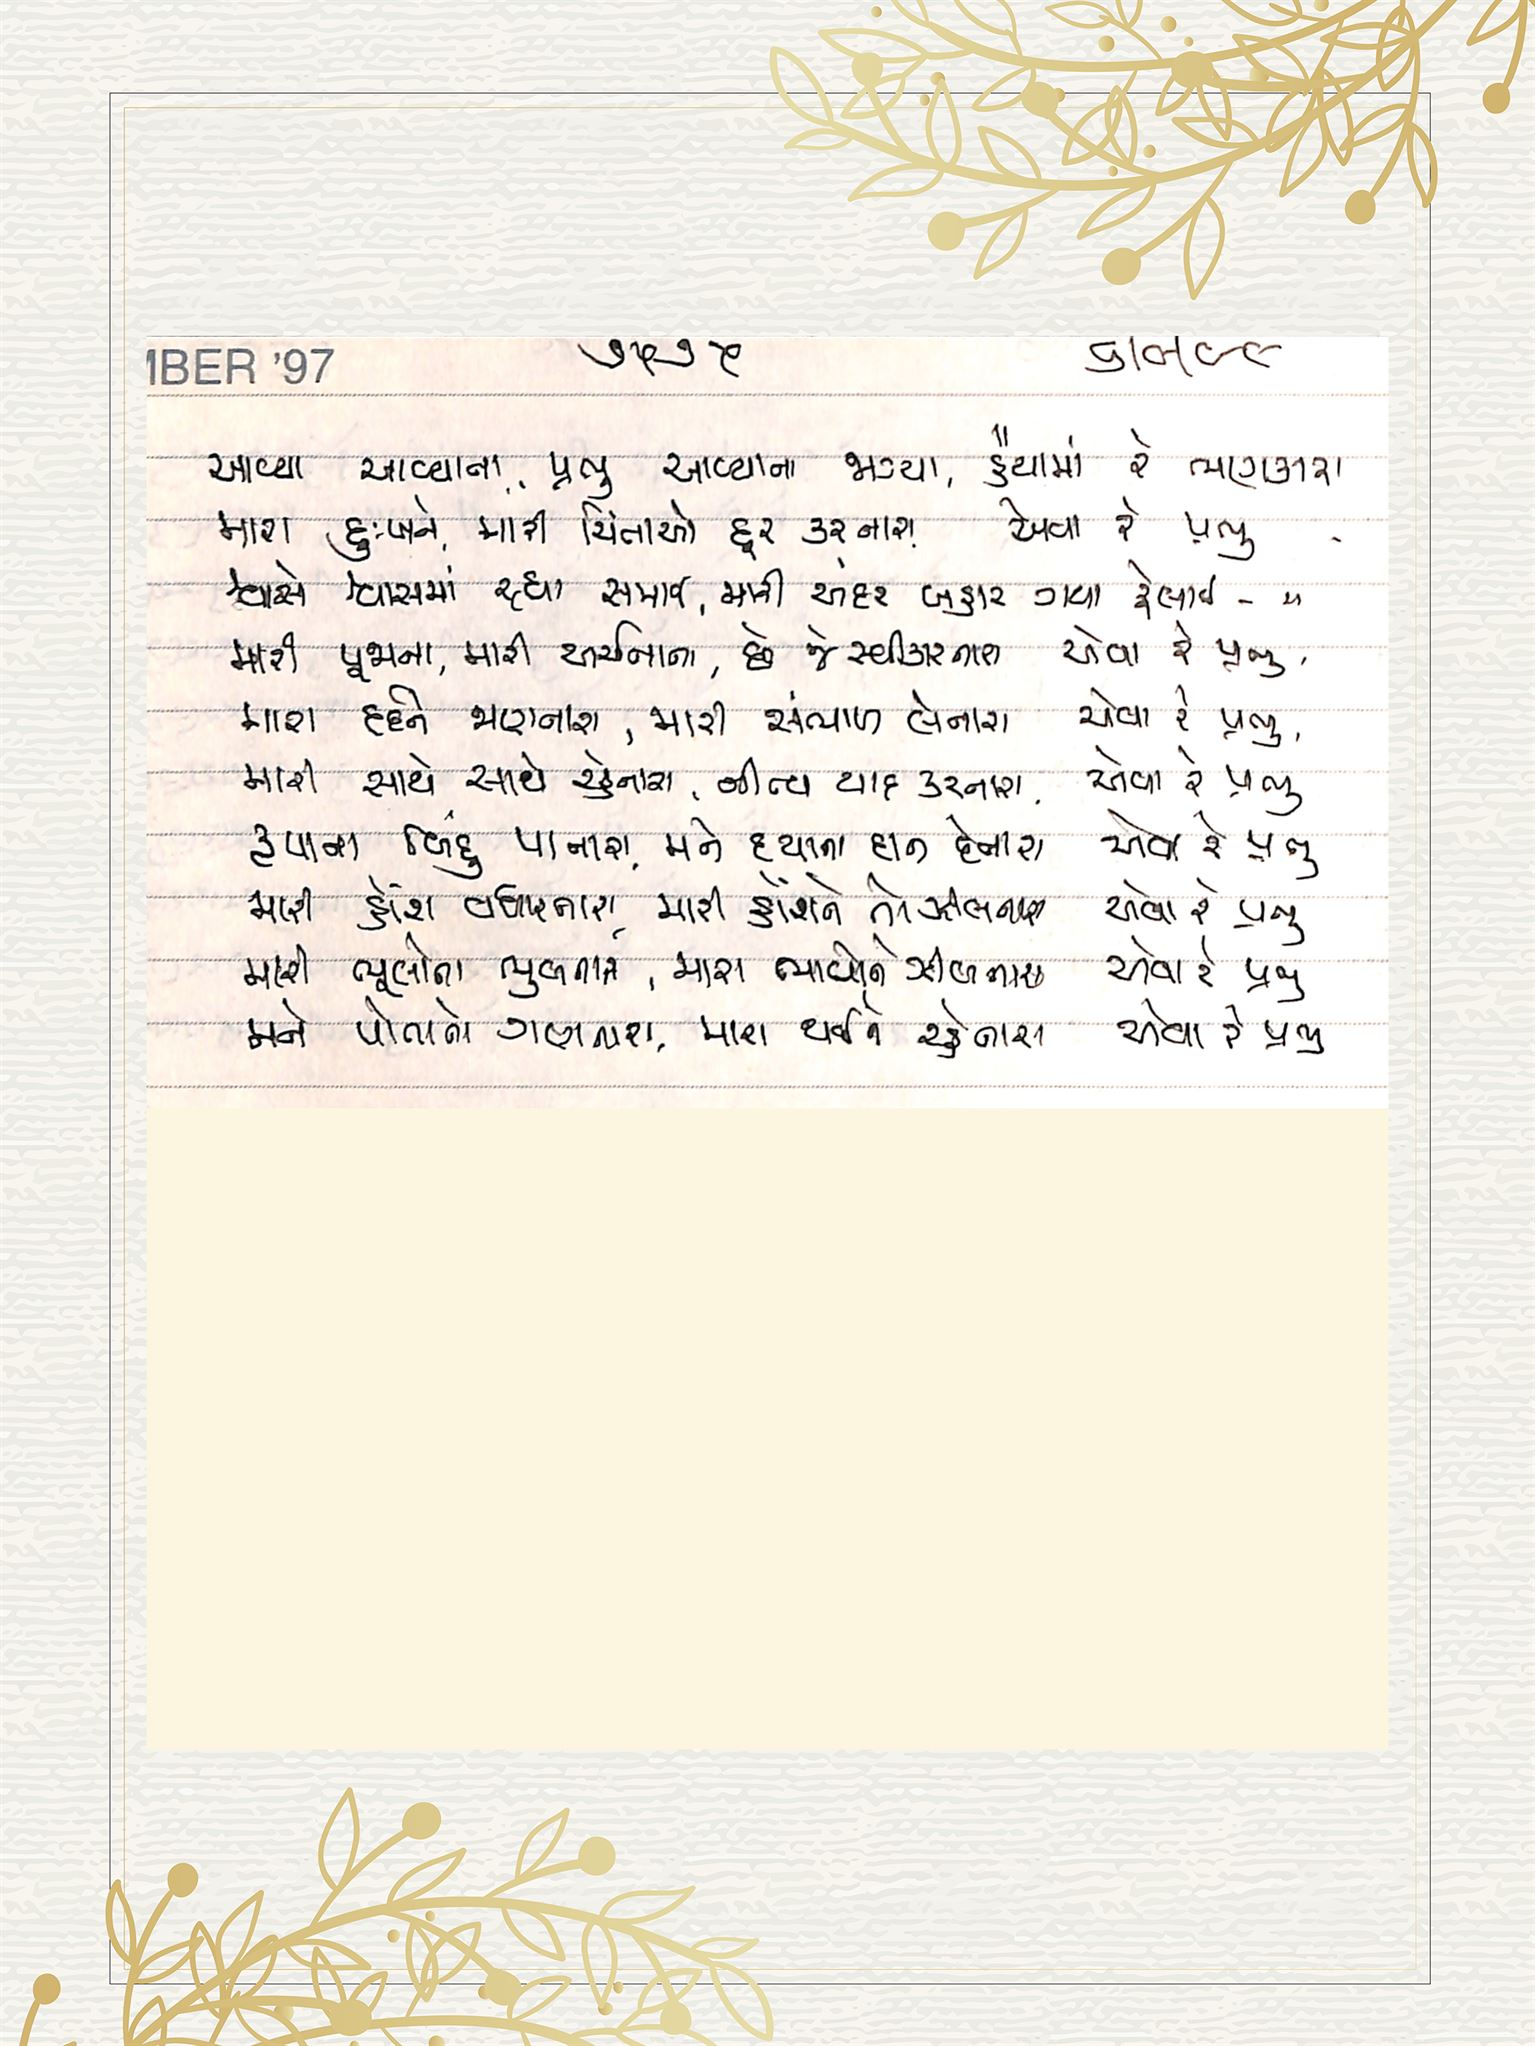 MBER '97
આવ્યા આવ્યાના, પ્રભુ આવ્યાના ભગ્યા, હૈયામાં રે ભણકારા
મારા દુઃખને, મારી ચિંતાઓ દૂર કરનારા એવા રે પ્રભુ
શ્વાસે શ્વાસમાં રહ્યા સમાઈ, મારી અંદર બહાર ગયા ફેલાઈ - "
મારી પૂજાના, મારી અર્ચનાના, છે જે સ્વીકારનારા એવા રે પ્રભુ,
મારા દર્દને જાણનારા, મારી સંભાળ લેનારા એવા રે પ્રભુ,
મારી સાથે સાથે રહેનારા, નીત્ય યાદ કરનારા, એવા રે પ્રભુ
કૃપાના બિંદુ પાનારા, મને દયાના દાન દેનારા એવા રે પ્રભુ
મારી હોંશ વધારનારા, મારી હોંશને તો ઝીલનારા એવા રે પ્રભુ
મારી ભૂલોના ભુલનારા, મારા ભાવોને ઝીલનારા એવા રે પ્રભુ
મને પોતાનો ગણનારા, મારા થઈને રહેનારા એવા રે પ્રભુ